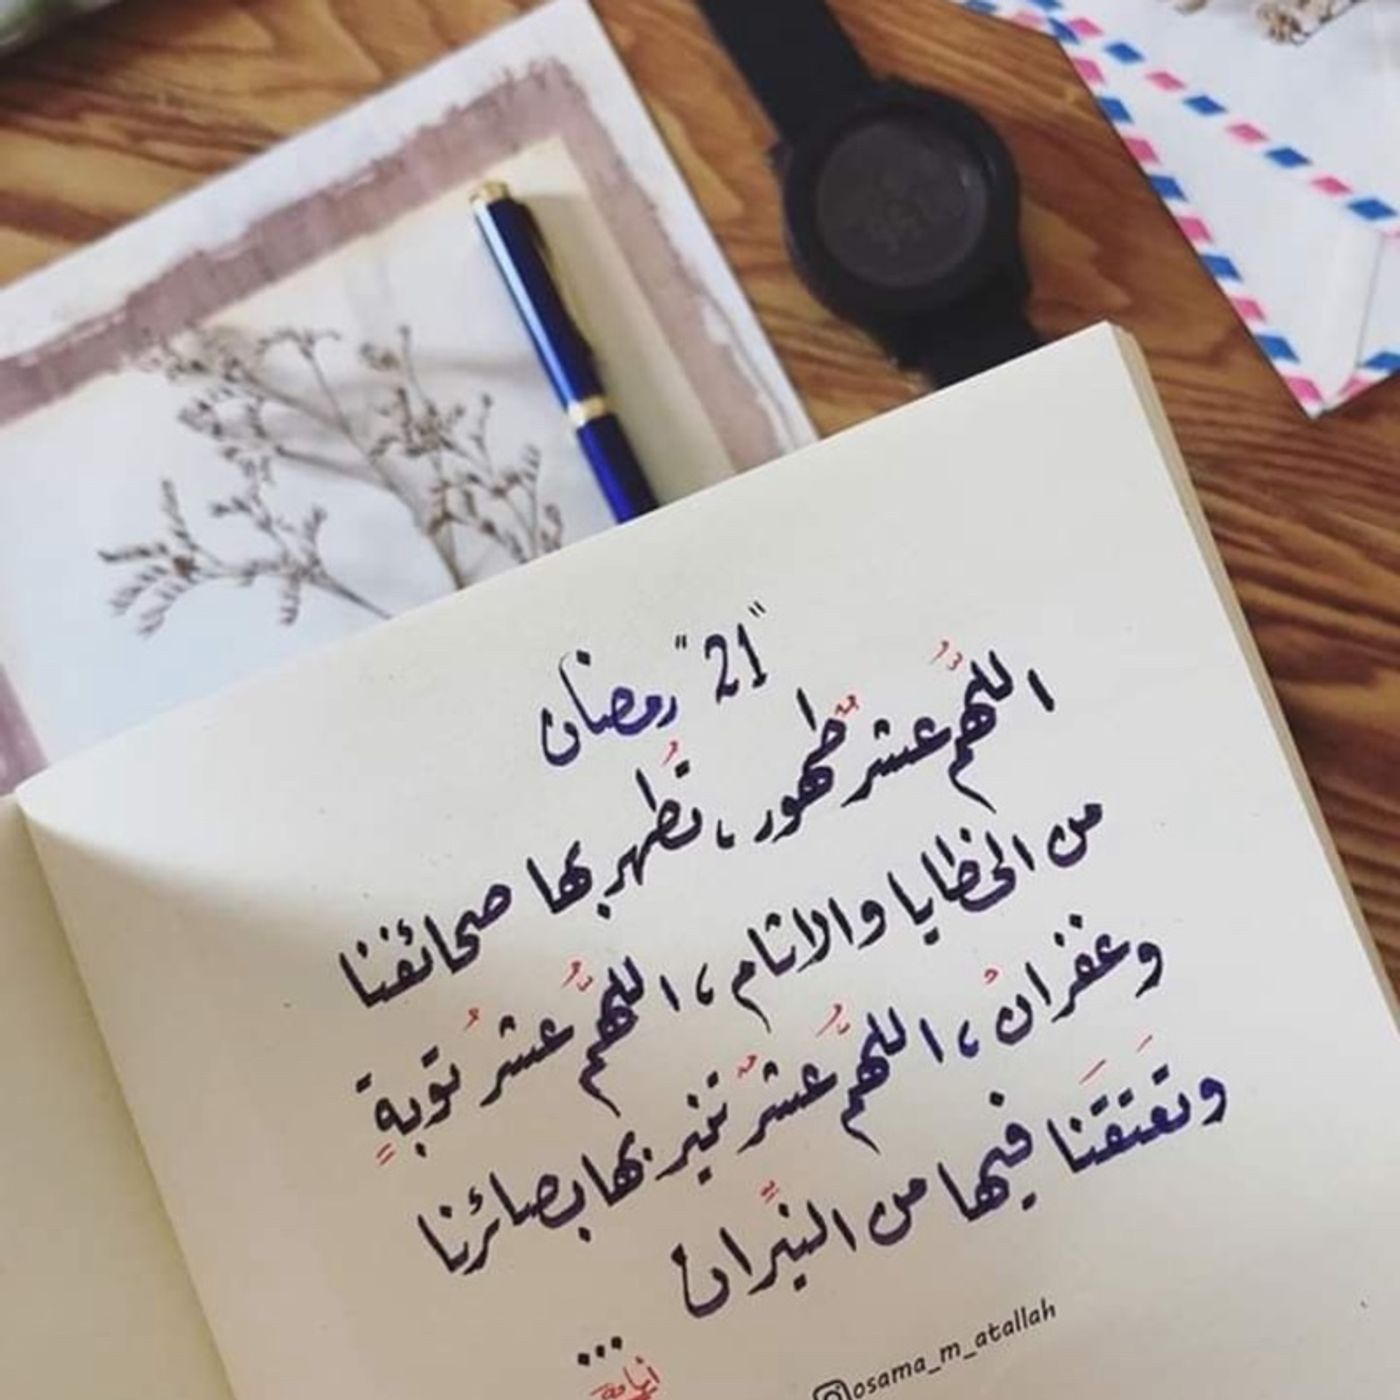 "21" رمضان
اللهُمَّ عشر طهور، تُطهر بها صحائفنا
من الخطايا والاثام، اللهُمَّ عشرُ توبةٍ
وغفرانُ، اللهُمَّ عشرٌ تنير بها بصائرنا
وتعتقَنا فيها من النيِّران
...
أسامة
osama_m_atallah